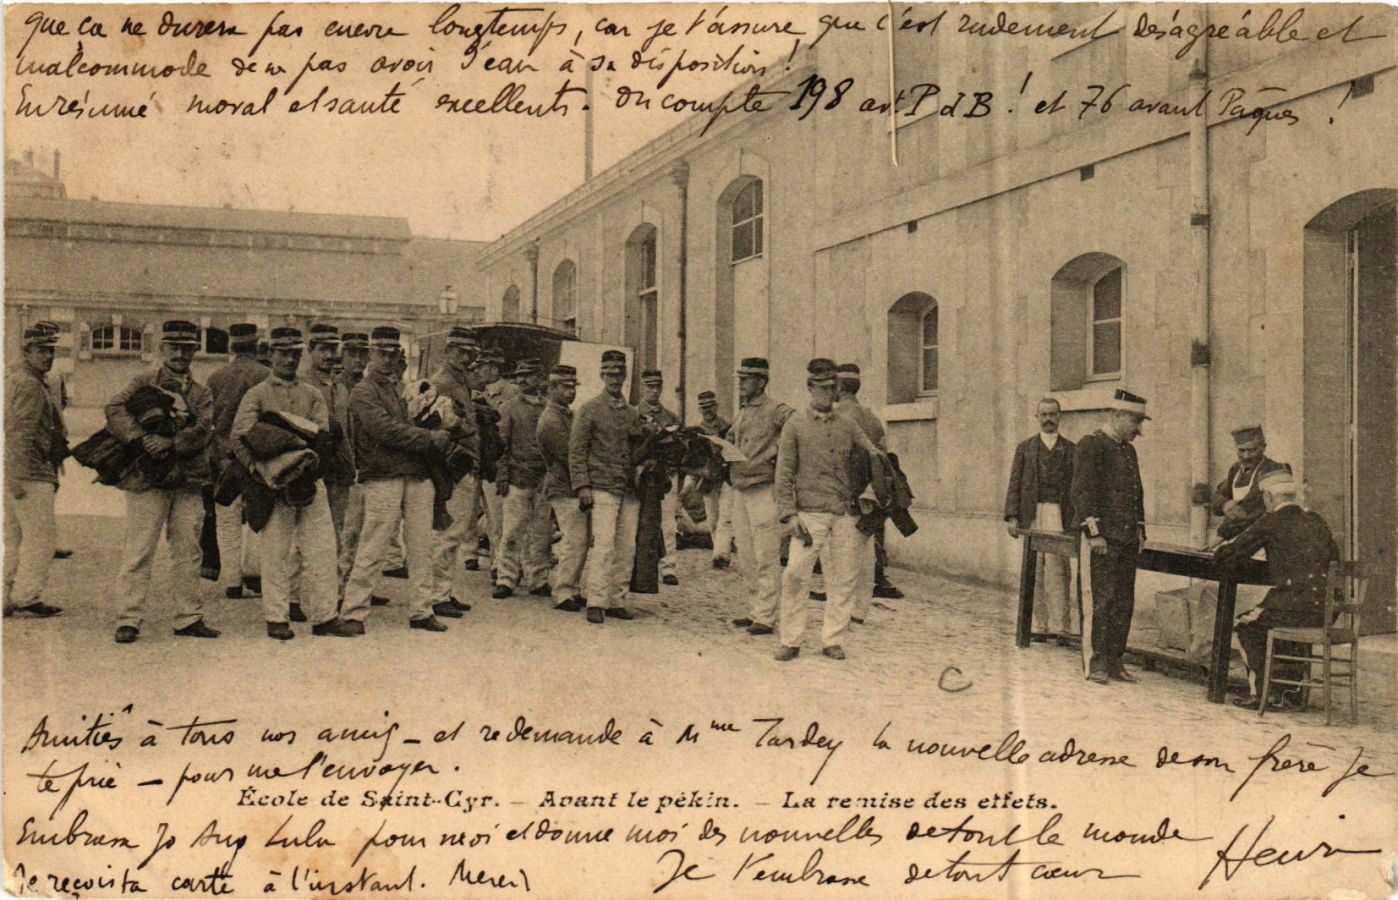 que ça ne durera pas encore longtemps, car je t'assure que c'est rudement désagréable et
malcommode de ne pas avoir d'eau à sa disposition !
En résumé moral et santé excellents. On compte 198 avt P d B ! et 76 avant Pâques !
Amitiés à tous nos amis – et redemande à Mme Tardey la nouvelle adresse de son frère je
te prie – pour me l'envoyer.
École de Saint-Cyr. – Avant le pékin. – La remise des effets.
Embrasse Jo Aug Lulu pour moi et donne moi des nouvelles de tout le monde
Je reçois ta carte à l'instant. Merci
Je t'embrasse de tout cœur
Henri
C